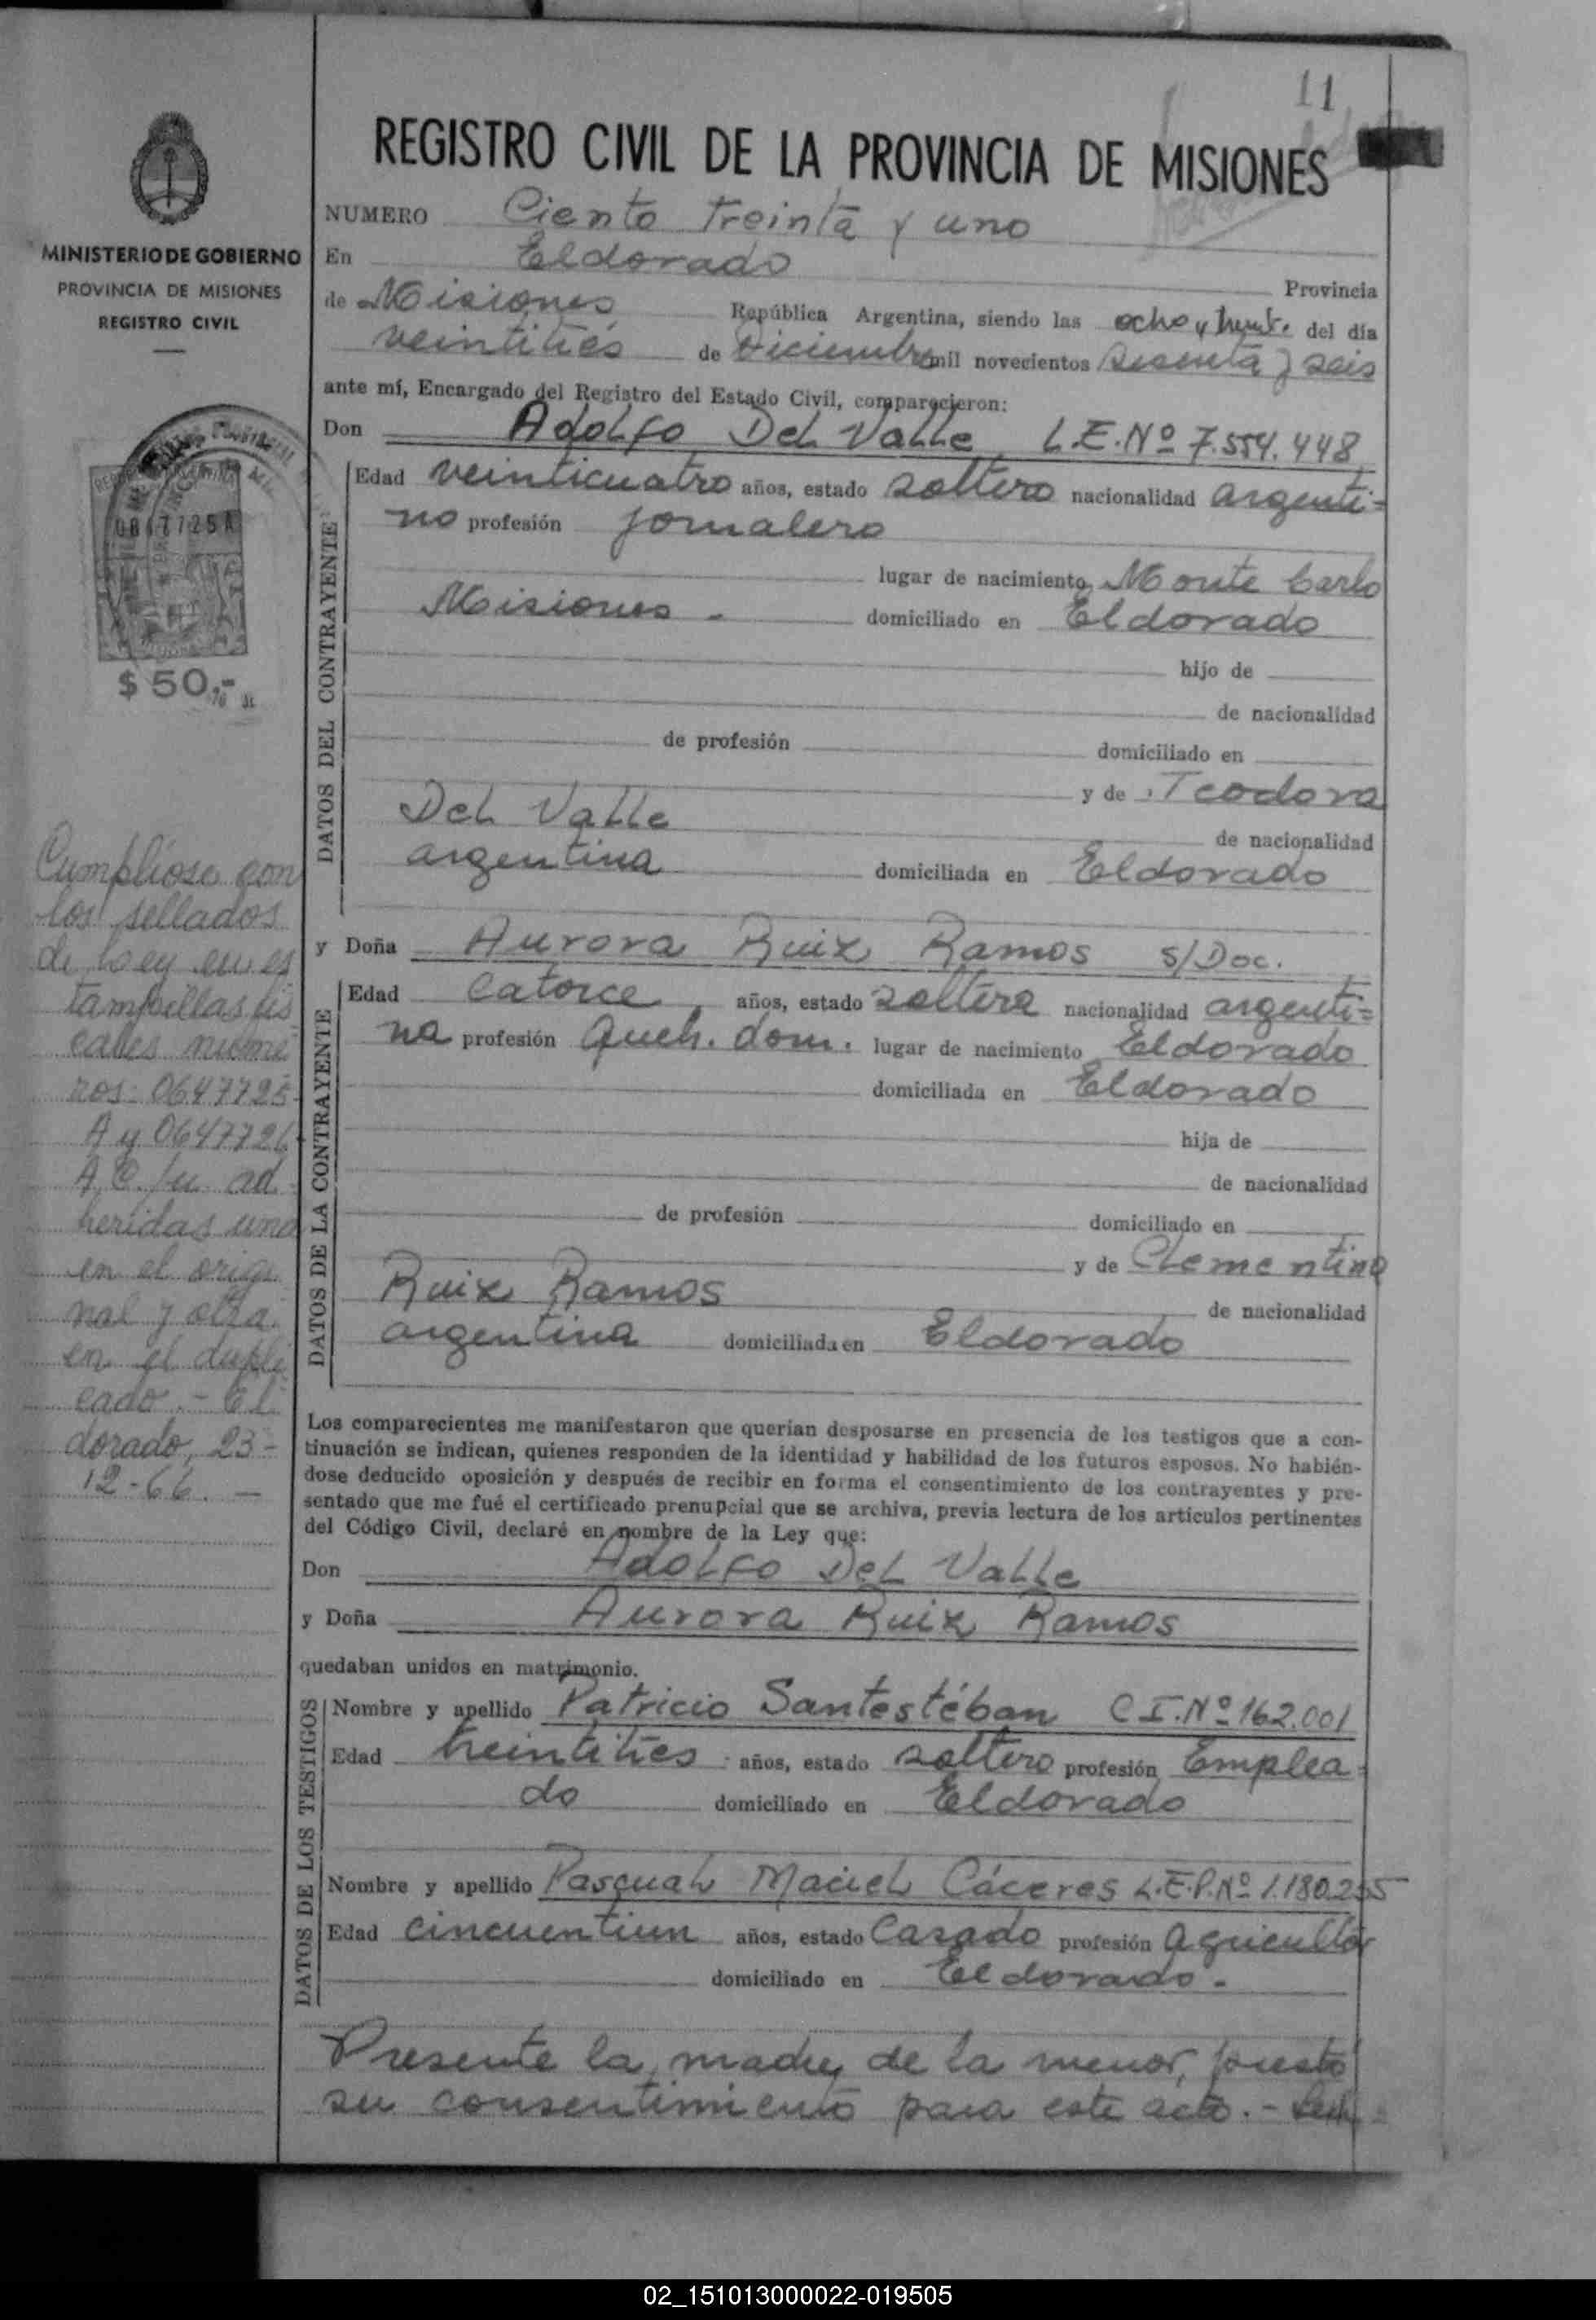 11
REGISTRO CIVIL DE LA PROVINCIA DE MISIONES
MINISTERIO DE GOBIERNO
PROVINCIA DE MISIONES
REGISTRO CIVIL
NUMERO Ciento treinta y uno
En Eldorado Provincia
de Misiones República Argentina, siendo las ocho y treinta del día
veintitrés de Diciembre mil novecientos sesenta y seis
ante mí, Encargado del Registro del Estado Civil, comparecieron:
Don Adolfo Del Valle L.E.Nº 7.554.448
DATOS DEL CONTRAYENTE
Edad veinticuatro años, estado soltero nacionalidad argenti=
no profesión jornalero
lugar de nacimiento Monte Carlo
Misiones - domiciliado en Eldorado
hijo de
de nacionalidad
de profesión domiciliado en
y de Teodora
Del Valle de nacionalidad
argentina domiciliada en Eldorado
y Doña Aurora Ruiz Ramos s/Doc.
DATOS DE LA CONTRAYENTE
Edad catorce años, estado soltera nacionalidad argenti=
na profesión Queh. dom. lugar de nacimiento Eldorado
domiciliada en Eldorado
hija de
de nacionalidad
de profesión domiciliado en
y de Clementina
Ruiz Ramos de nacionalidad
argentina domiciliada en Eldorado
Los comparecientes me manifestaron que querían desposarse en presencia de los testigos que a con-
tinuación se indican, quienes responden de la identidad y habilidad de los futuros esposos. No habién-
dose deducido oposición y después de recibir en forma el consentimiento de los contrayentes y pre-
sentado que me fué el certificado prenupcial que se archiva, previa lectura de los artículos pertinentes
del Código Civil, declaré en nombre de la Ley que:
Don Adolfo Del Valle
y Doña Aurora Ruiz Ramos
quedaban unidos en matrimonio.
DATOS DE LOS TESTIGOS
Nombre y apellido Patricio Santestéban C.I.Nº 162.001
Edad treintitrés años, estado soltero profesión Emplea=
do domiciliado en Eldorado
Nombre y apellido Pascual Maciel Cáceres L.E.P.Nº 1.180.255
Edad cincuentiun años, estado Casado profesión agricultor
domiciliado en Eldorado.
Presente la madre de la menor, presto
su consentimiento para este acto. -
$ 50,-
Cumplióse con
los sellados
de Ley en es
tampillas fis
cales núme
ros: 0647725
A y 0647726
A ad
heridas una
en el origi
nal y otra
en el dupli
cado. - El
dorado, 23-
12-66. -
02_151013000022-019505